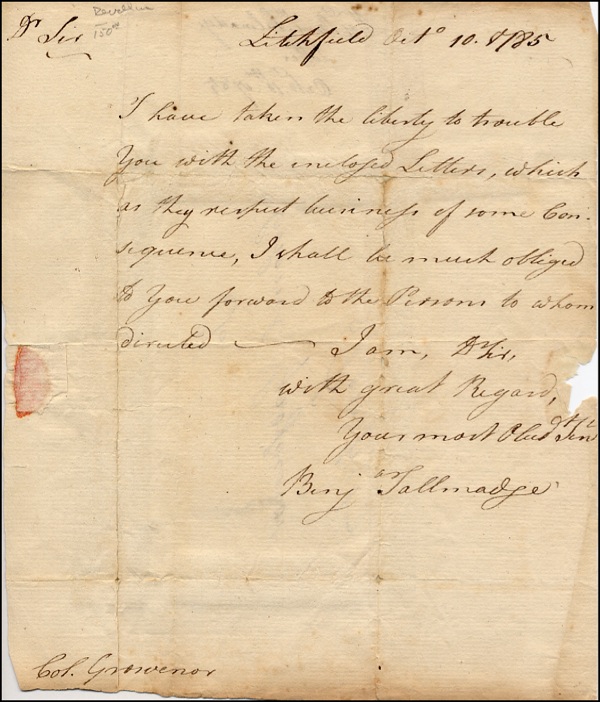 Dr Sir
Litchfield Octo 10. 1785
I have taken the liberty to trouble
You with the enclosed Letters, which
as they respect business of some Con-
sequence, I shall be much obliged
to You forward to the Persons to whom
directed
I am, Dr Sir,
with great Regard,
Your most Obedt Servt
Benjan Tallmadge
Col. Grosvenor